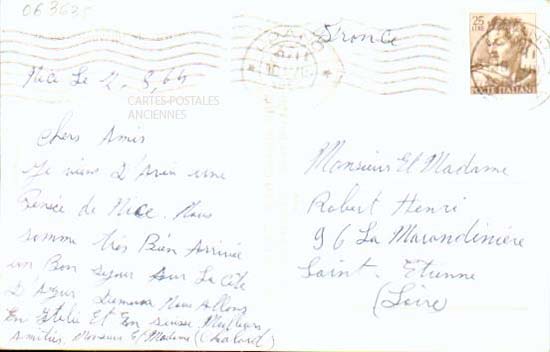 063635
France
25
LIRE
POSTE ITALIANE
Nice Le 2. 8, 64
CARTES-POSTALES
ANCIENNES
Chers Amis
Je viens D'Avin une
Pensée de Nice. Nous
somme très Bien Arrivée
un Bon sejour sur La Côte
D'Azur Demain Nous Allons
En Italie Et En suisse, Meilleurs
Amitiés, Monsieur Et Madame (Chalard)
Monsieur Et Madame
Robert Henri
96 La Marandinière
Saint. Etienne
(Loire)